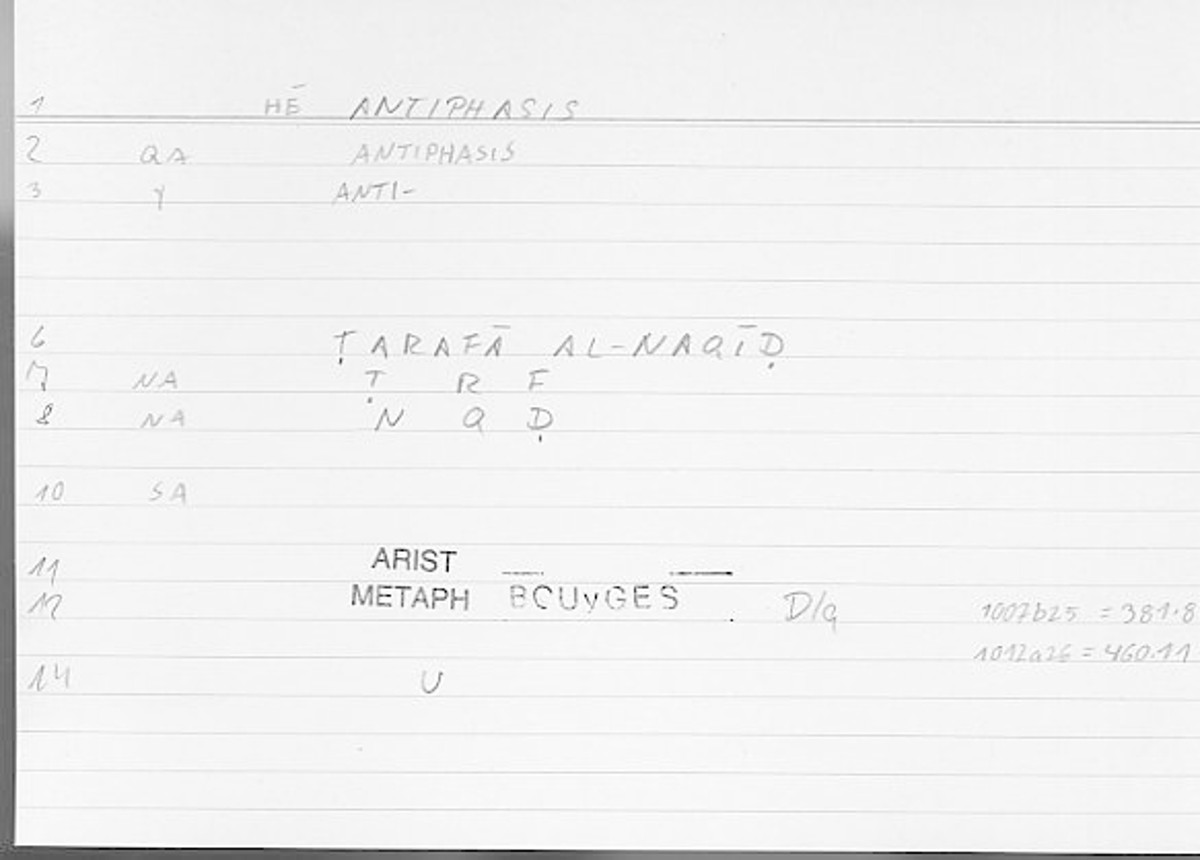 1 HĒ ANTIPHASIS
2 QA ANTIPHASIS
3 Y ANTI-
6 ṬARAFĀ AL-NAQĪḌ
7 NA Ṭ R F
8 NA N Q Ḍ
10 SA
11 ARIST
12 METAPH BOUyGES D/q 1007b25 = 381.8
1012a26 = 460.11
14 U